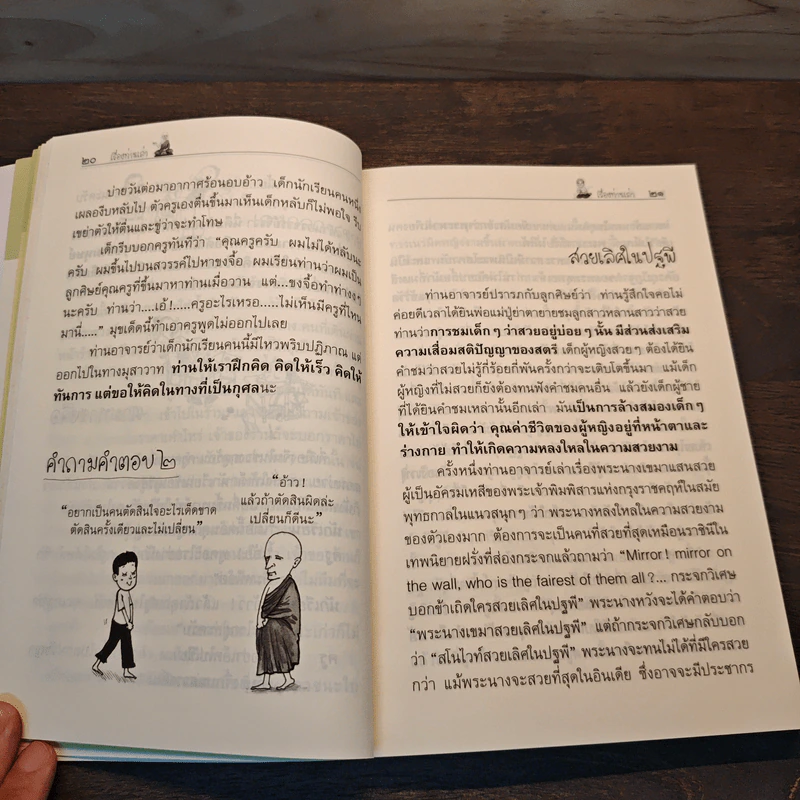 ๒๐ เรื่องท่านเล่า
บ่ายวันต่อมาอากาศร้อนอบอ้าว เด็กนักเรียนคนหนึ่ง
เผลองีบหลับไป ตัวครูเองตื่นขึ้นมาเห็นเด็กหลับก็ไม่พอใจ รีบ
เขย่าตัวให้ตื่นและขู่ว่าจะทำโทษ
เด็กรีบบอกครูทันทีว่า “คุณครูครับ ผมไม่ได้หลับนะ
ครับ ผมขึ้นไปบนสวรรค์ไปหาขงจื้อ ผมเรียนท่านว่าผมเป็น
ลูกศิษย์คุณครูที่ขึ้นมาหาท่านเมื่อวาน แต่...ขงจื้อทำท่างงๆ
นะครับ ท่านว่า....เอ้!....ครูอะไรเหรอ.....ไม่เห็นมีครูที่ไหน
มานี่.....” มุขเด็ดนี้ทำเอาครูพูดไม่ออกไปเลย
ท่านอาจารย์ว่าเด็กนักเรียนคนนี้มีไหวพริบปฏิภาณ แต่
ออกไปในทางมุสาวาท ท่านให้เราฝึกคิด คิดให้เร็ว คิดให้
ทันการ แต่ขอให้คิดในทางที่เป็นกุศลนะ
คำถามคำตอบ ๒
“อยากเป็นคนตัดสินใจอะไรเด็ดขาด
ตัดสินครั้งเดียวและไม่เปลี่ยน”
“อ้าว!
แล้วถ้าตัดสินผิดล่ะ
เปลี่ยนก็ดีนะ”
เรื่องท่านเล่า ๒๑
สวยเลิศในปฐพี
ท่านอาจารย์ปรารภกับลูกศิษย์ว่า ท่านรู้สึกใจคอไม่
ค่อยดีเวลาได้ยินพ่อแม่ปู่ย่าตายายชมลูกสาวหลานสาวว่าสวย
ท่านว่าการชมเด็กๆ ว่าสวยอยู่บ่อยๆ นั้น มีส่วนส่งเสริม
ความเสื่อมสติปัญญาของสตรี เด็กผู้หญิงสวยๆ ต้องได้ยิน
คำชมว่าสวยไม่รู้กี่ร้อยกี่พันครั้งกว่าจะเติบโตขึ้นมา แม้เด็ก
ผู้หญิงที่ไม่สวยก็ยังต้องทนฟังคำชมคนอื่น แล้วยังเด็กผู้ชาย
ที่ได้ยินคำชมเหล่านั้นอีกเล่า มันเป็นการล้างสมองเด็กๆ
ให้เข้าใจผิดว่า คุณค่าชีวิตของผู้หญิงอยู่ที่หน้าตาและ
ร่างกาย ทำให้เกิดความหลงใหลในความสวยงาม
ครั้งหนึ่งท่านอาจารย์เล่าเรื่องพระนางเขมาแสนสวย
ผู้เป็นอัครมเหสีของพระเจ้าพิมพิสารแห่งกรุงราชคฤห์ในสมัย
พุทธกาลในแนวสนุกๆ ว่า พระนางหลงใหลในความสวยงาม
ของตัวเองมาก ต้องการจะเป็นคนที่สวยที่สุดเหมือนราชินีใน
เทพนิยายฝรั่งที่ส่องกระจกแล้วถามว่า “Mirror! mirror on
the wall, who is the fairest of them all?... กระจกวิเศษ
บอกข้าเถิดใครสวยเลิศในปฐพี” พระนางหวังจะได้คำตอบว่า
“พระนางเขมาสวยเลิศในปฐพี” แต่ถ้ากระจกวิเศษกลับบอก
ว่า “สโนไวท์สวยเลิศในปฐพี” พระนางจะทนไม่ได้ที่มีใครสวย
กว่า แม้พระนางจะสวยที่สุดในอินเดีย ซึ่งอาจจะมีประชากร